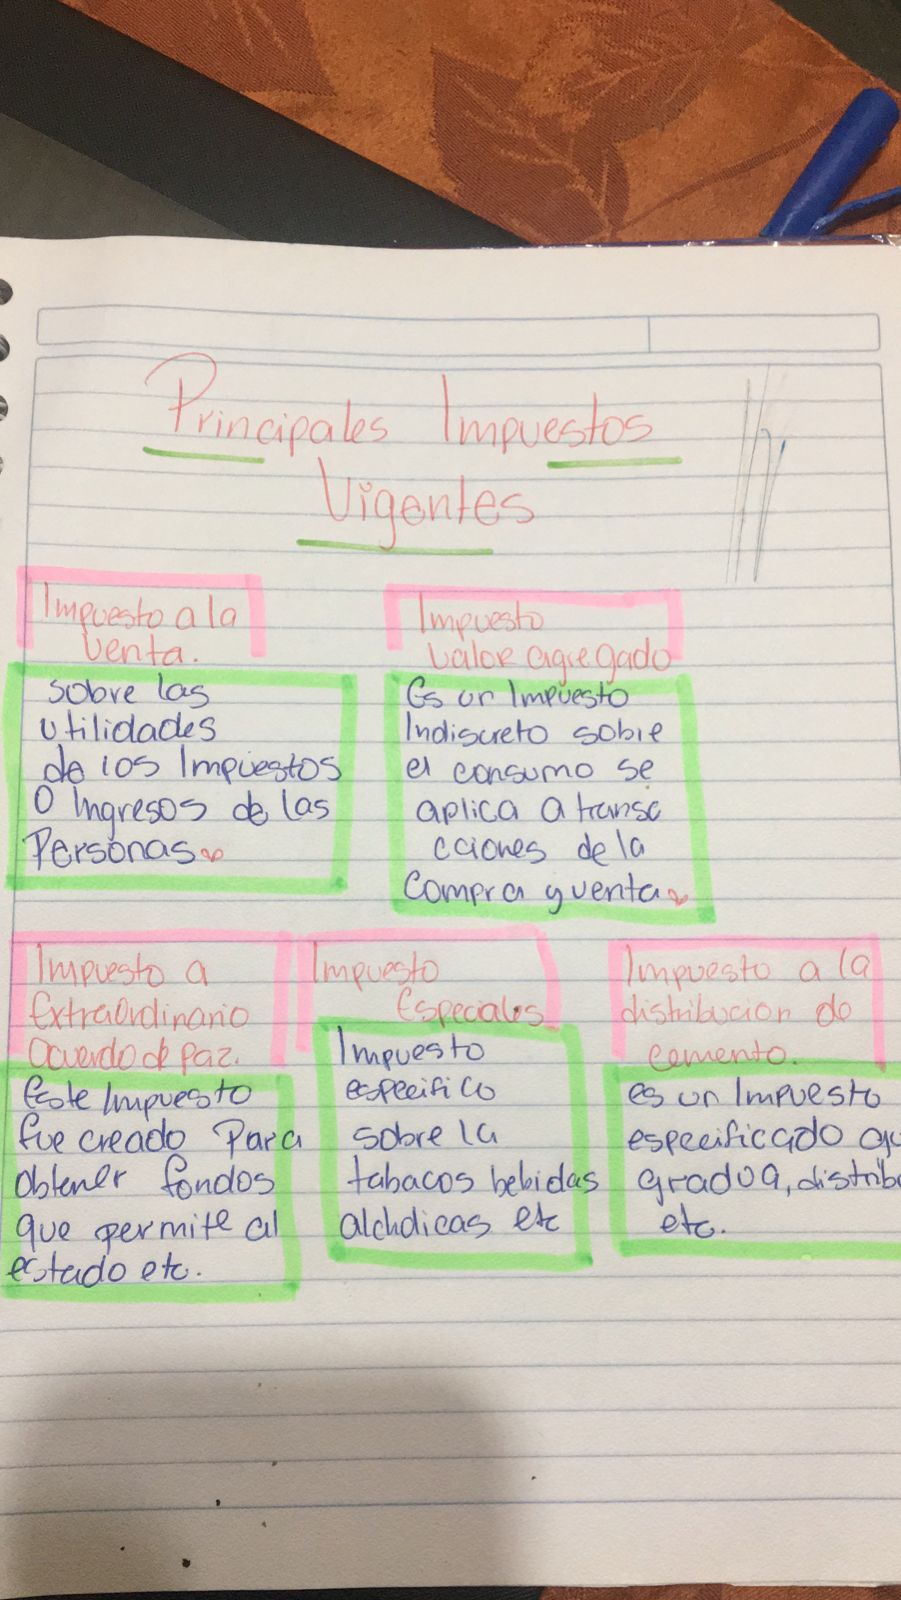 Principales Impuestos
Vigentes
Impuesto a la
venta.
sobre las
utilidades
de los Impuestos
O Ingresos de las
Personas
Impuesto
valor agregado
Es un Impuesto
Indiscreto sobre
el consumo se
aplica a transa
cciones de la
compra y venta
Impuesto a
Extraordinario
acuerdo de paz.
Este Impuesto
fue creado Para
obtener fondos
que permite al
estado etc.
Impuesto
Especiales
Impuesto
especifico
sobre la
tabacos bebidas
alcholicas etc
Impuesto a la
distribucion de
cemento.
es un Impuesto
especificado
gradua, distrib
etc.